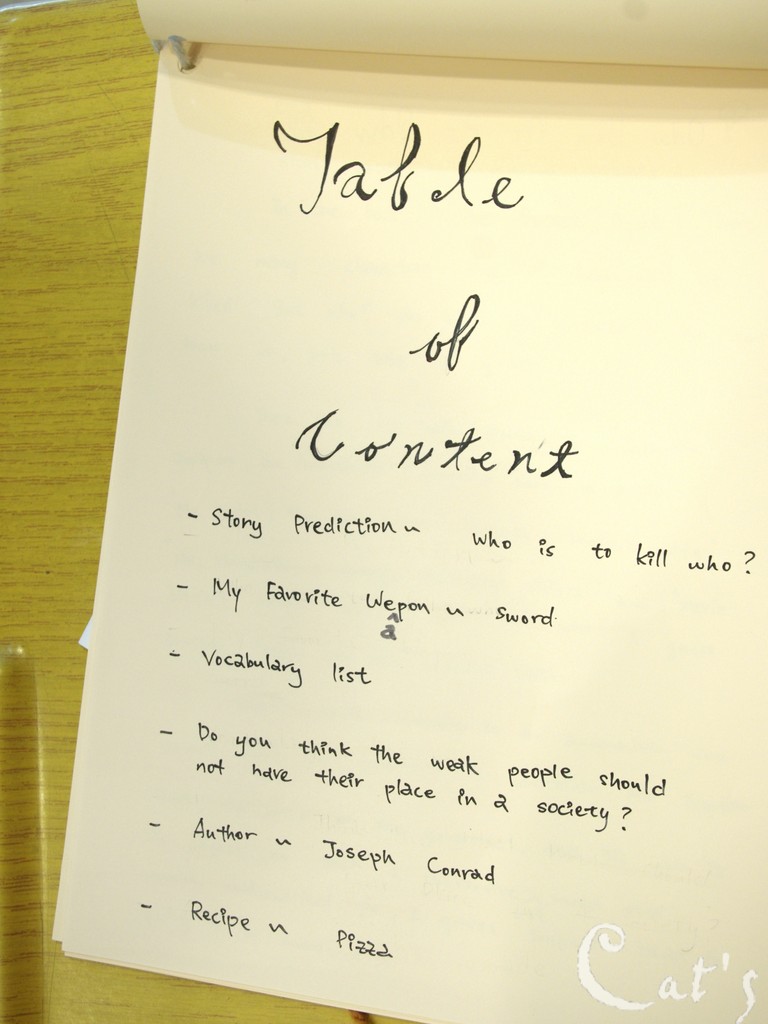 Table
of
Content
- Story Prediction ~ who is to kill who?
- My Favorite Weapon ~ sword
- Vocabulary list
- Do you think the weak people should
not have their place in a society?
- Author ~ Joseph Conrad
- Recipe ~ Pizza
Cat's